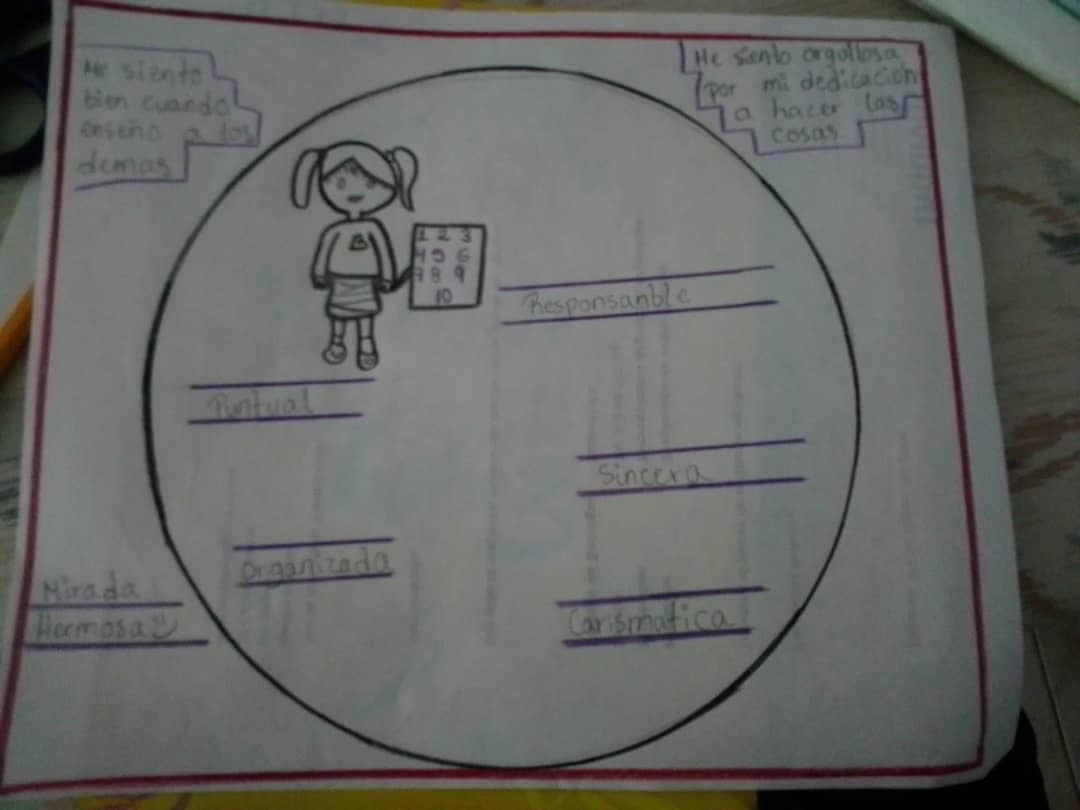 Me siento
bien cuando
enseño a los
demas
Me siento orgullosa
por mi dedicación
a hacer las
cosas
B
1 2 3
4 5 6
7 8 9
10
Responsanble
Puntual
Sincera
Organizada
Carismatica
Mirada
Hermosa